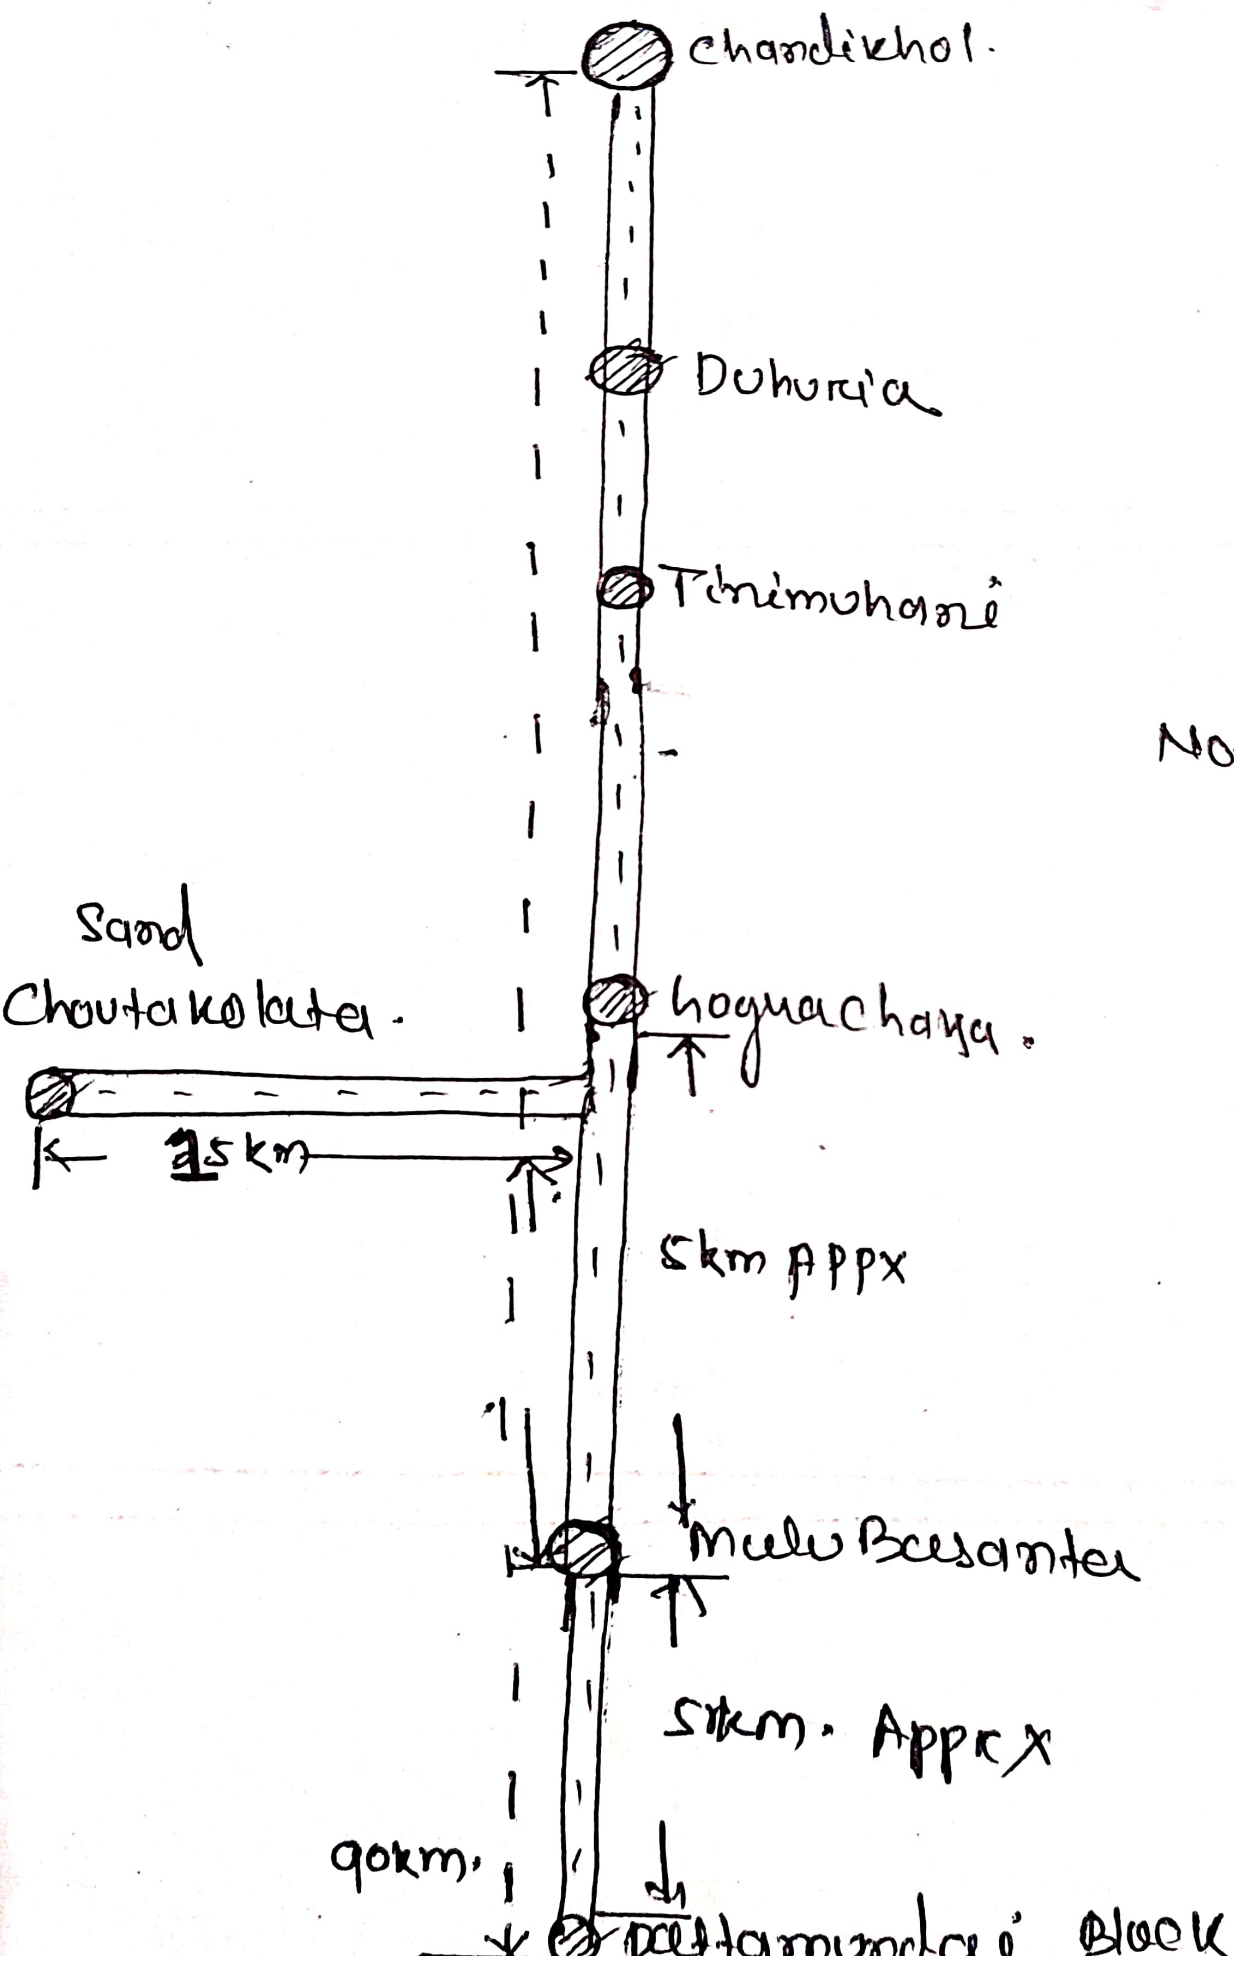 Chandikhol.
Duhuria
Tinimuhani
NO
Sand
Choutakolata.
hoguachaya.
15km
5km APPX
Mulu Basanta
5km. Apprx
90km.
Pattamundai Block